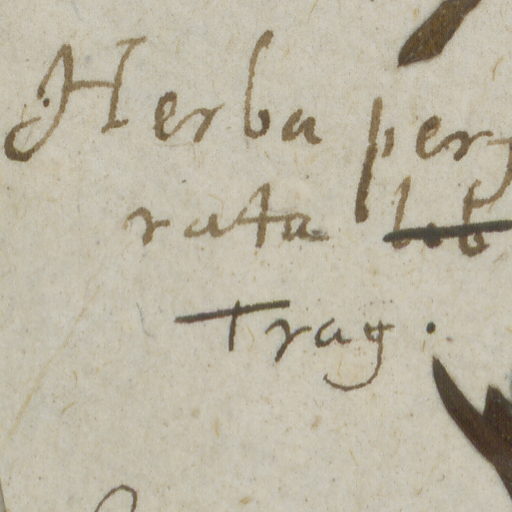 Herba per
rata
Trag.